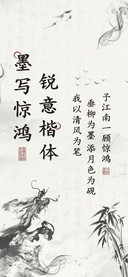 锐意楷体
墨写惊鸿
子江南一顾惊鸿
垂柳为墨添月色为砚
我以清风为笔